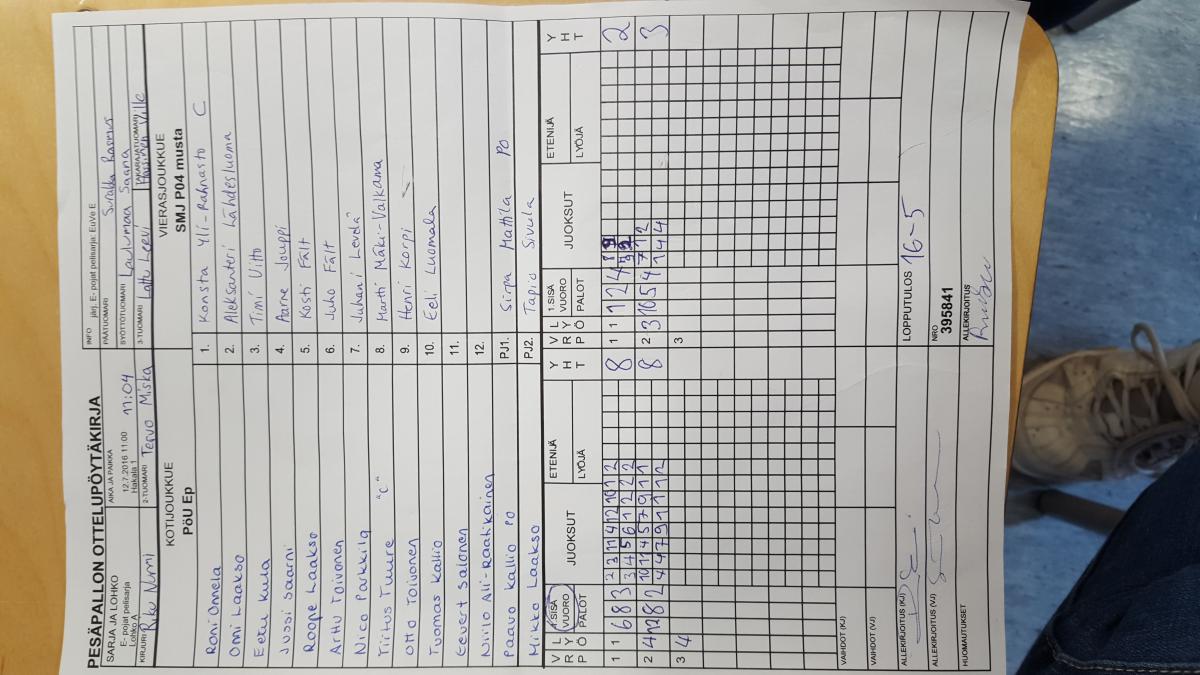 PESÄPALLON OTTELUPÖYTÄKIRJA
SARJA JA LOHKO
E- pojat pelisarja
Lohko A
AIKA JA PAIKKA
12.7.2016 11.00 11:04
Hakala 1
INFO järj. E- pojat pelisarja: EuVe E
PÄÄTUOMARI
SYÖTTÖTUOMARI Laulumaa Saana
KIRJURI Riku Nurmi
2-TUOMARI Tervo Miska
3-TUOMARI Lattu Leevi
TAKARAJATUOMARI Ville
KOTIJOUKKUE
PöU Ep
VIERASJOUKKUE
SMJ P04 musta
Roni Onnela
1. Konsta Yli-Rahnasto C
Omi Laakso
2. Aleksanteri Lähdesluoma
Eetu Kula
3. Timi Uitto
Jussi Saarni
4. Aarne Jouppi
Roope Laakso
5. Kosti Fält
Arttu Toivonen
6. Juho Fält
Nico Parkkila
7. Juhani Levelä
Tiitus Tuure "C"
8. Martti Mäki-Valkama
Otto Toivonen
9. Henri Korpi
Tuomas Kallio
10. Eeli Luomala
Eevert Salonen
11.
Niilo Ali-Raatikainen
12.
Paavo Kallio PO
PJ1. Sirpa Mattila PO
Mikko Laakso
PJ2. Tapio Sivula
V R P
L Y Ö
1.SISÄ VUORO
PALOT
JUOKSUT
ETENIJÄ
LYÖJÄ
Y H T
V R P
L Y Ö
1.SISÄ VUORO
PALOT
JUOKSUT
ETENIJÄ
LYÖJÄ
Y H T
1 1 6 8 3
2 3 11 4 12 10 1 2
3 4 5 6 1 2 2 2
8
1 1 1 2 4
2
2 4 12 8 2
10 11 4 5 7 9 11
4 4 7 9 11 1 12
8
2 3 10 5 4
7 12
1 4 4
3
3 4
3
VAIHDOT (KJ)
VAIHDOT (VJ)
ALLEKIRJOITUS (KJ)
LOPPUTULOS 16-5
ALLEKIRJOITUS (VJ)
NRO
395841
HUOMAUTUKSET
ALLEKIRJOITUS